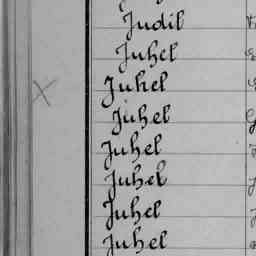 Judil
Juhel
Juhel
Juhel
Juhel
Juhel
Juhel
Juhel